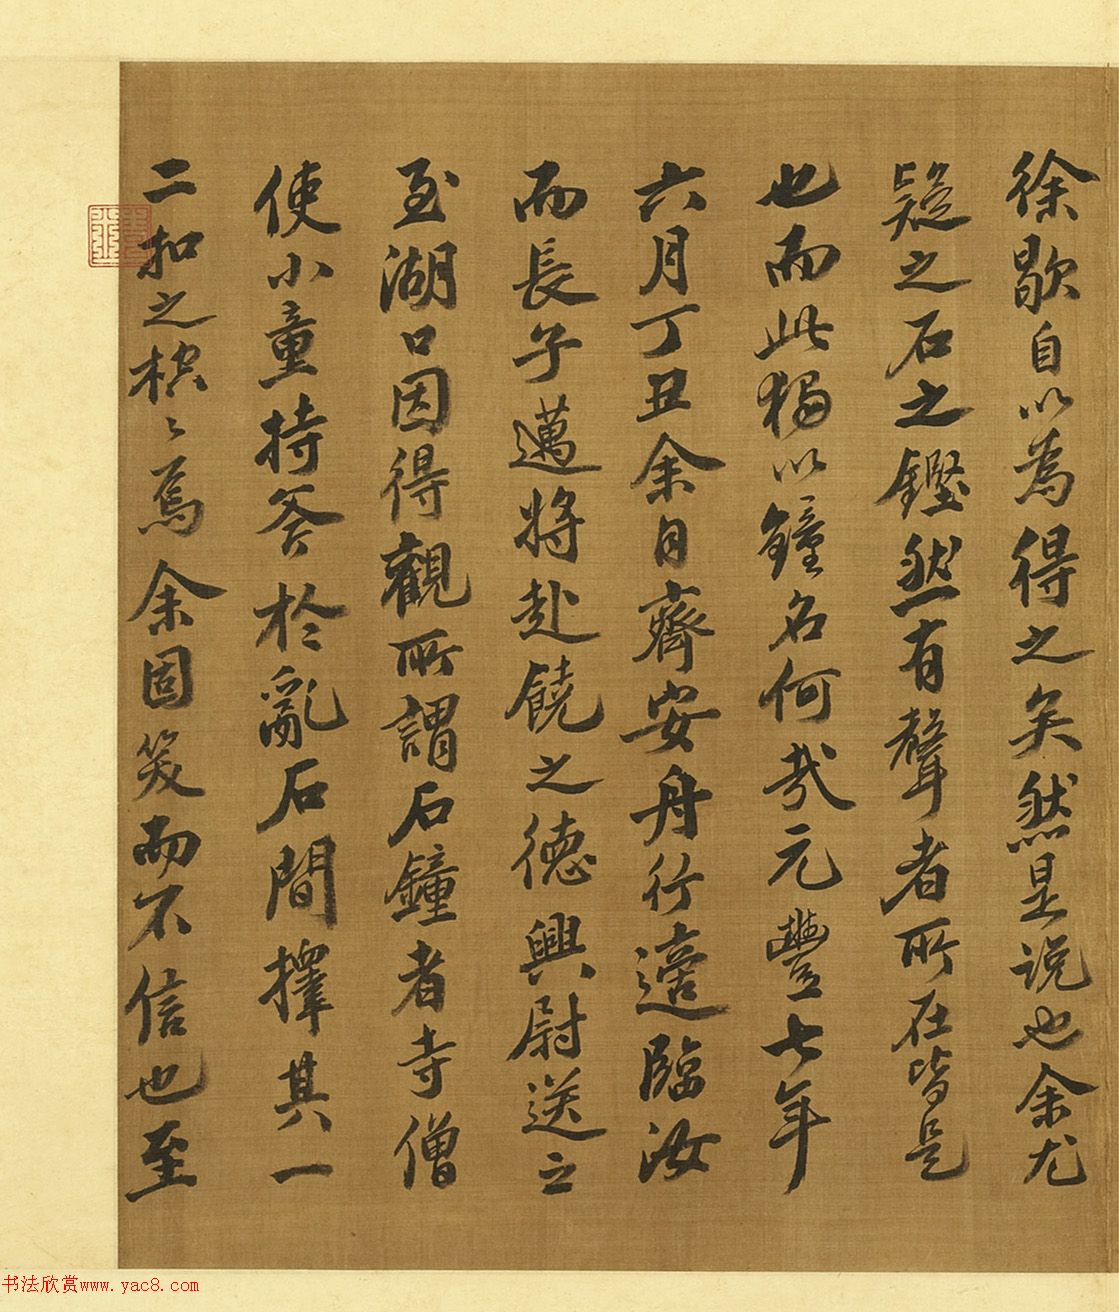 徐歇自以為得之矣然是說也余尤
疑之石之鏗然有聲者所在皆是
也而此獨以鐘名何哉元豐七年
六月丁丑余自齊安舟行適臨汝
而長子邁將赴饒之德興尉送之
至湖口因得觀所謂石鐘者寺僧
使小童持斧於亂石間擇其一
二扣之硿〻焉余固笑而不信也至
书法欣赏www.yac8.com